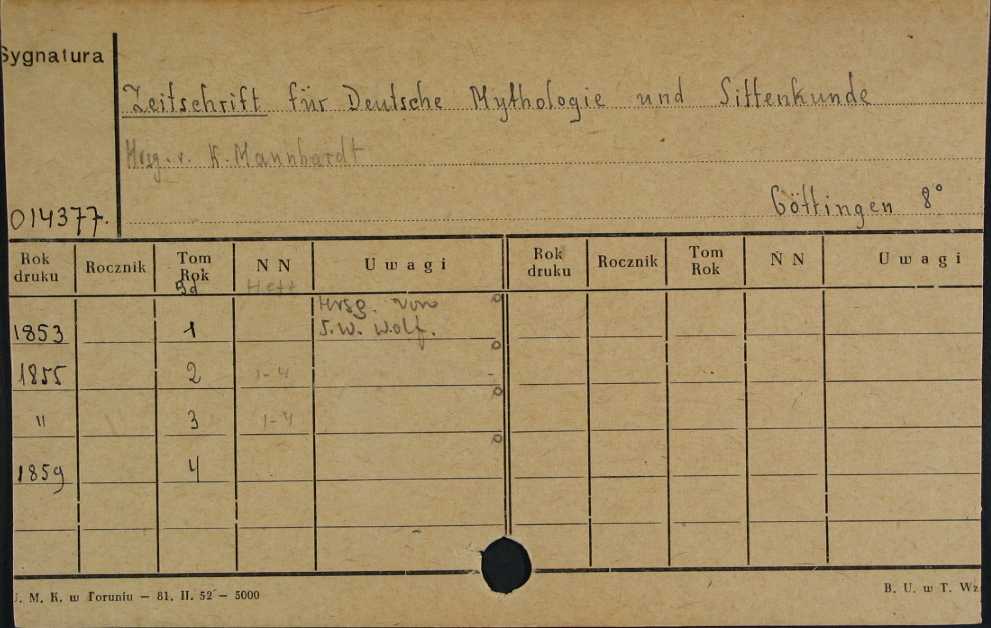 Sygnatura
Zeitschrift für Deutsche Mythologie und Sittenkunde
Hrsg. v. K. Mannhardt
014377. Göttingen 8°
Rok druku Rocznik Tom Rok N N Uwagi Rok druku Rocznik Tom Rok N N Uwagi
Bd Heft
1853 1 Hrsg. von
J. W. Wolf.
1855 2 1-4
" 3 1-4
1859 4
U. M. K. w Toruniu — 81. II. 52 — 5000 B. U. w T. Wz